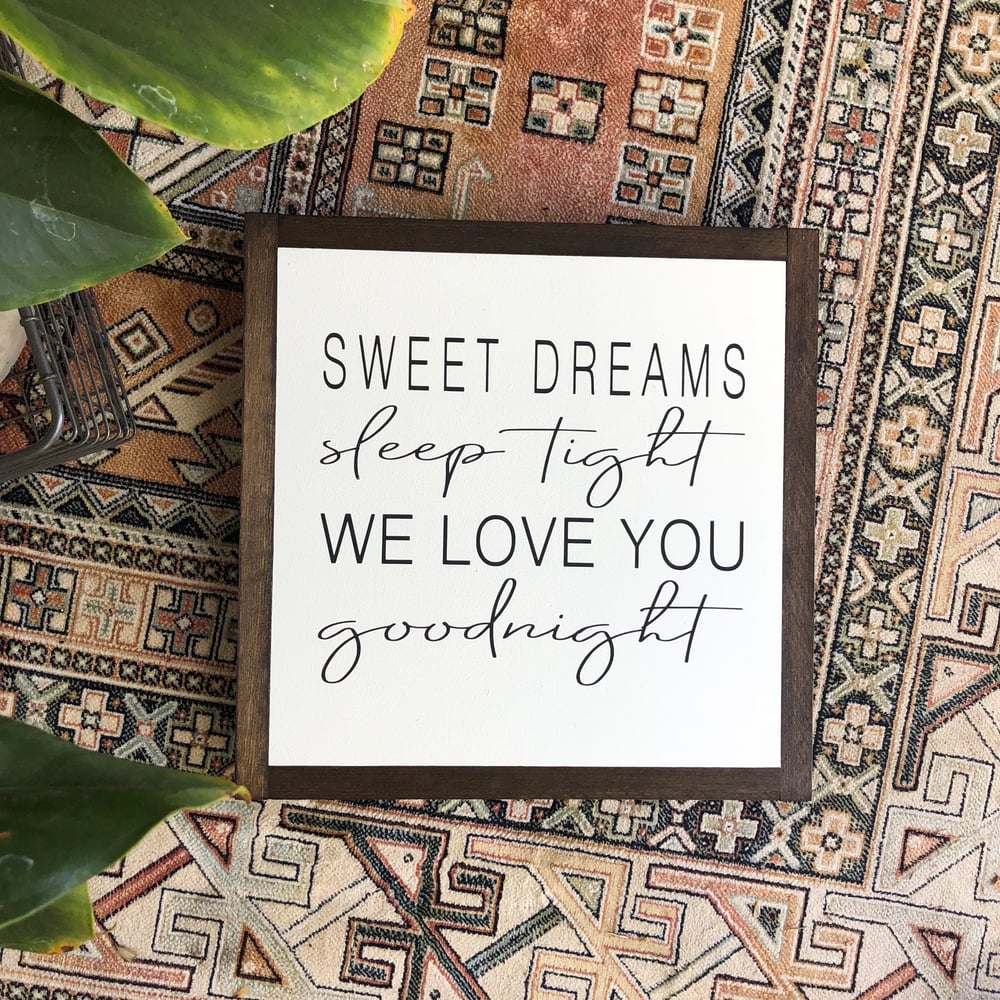 SWEET DREAMS
sleep tight
WE LOVE YOU
goodnight